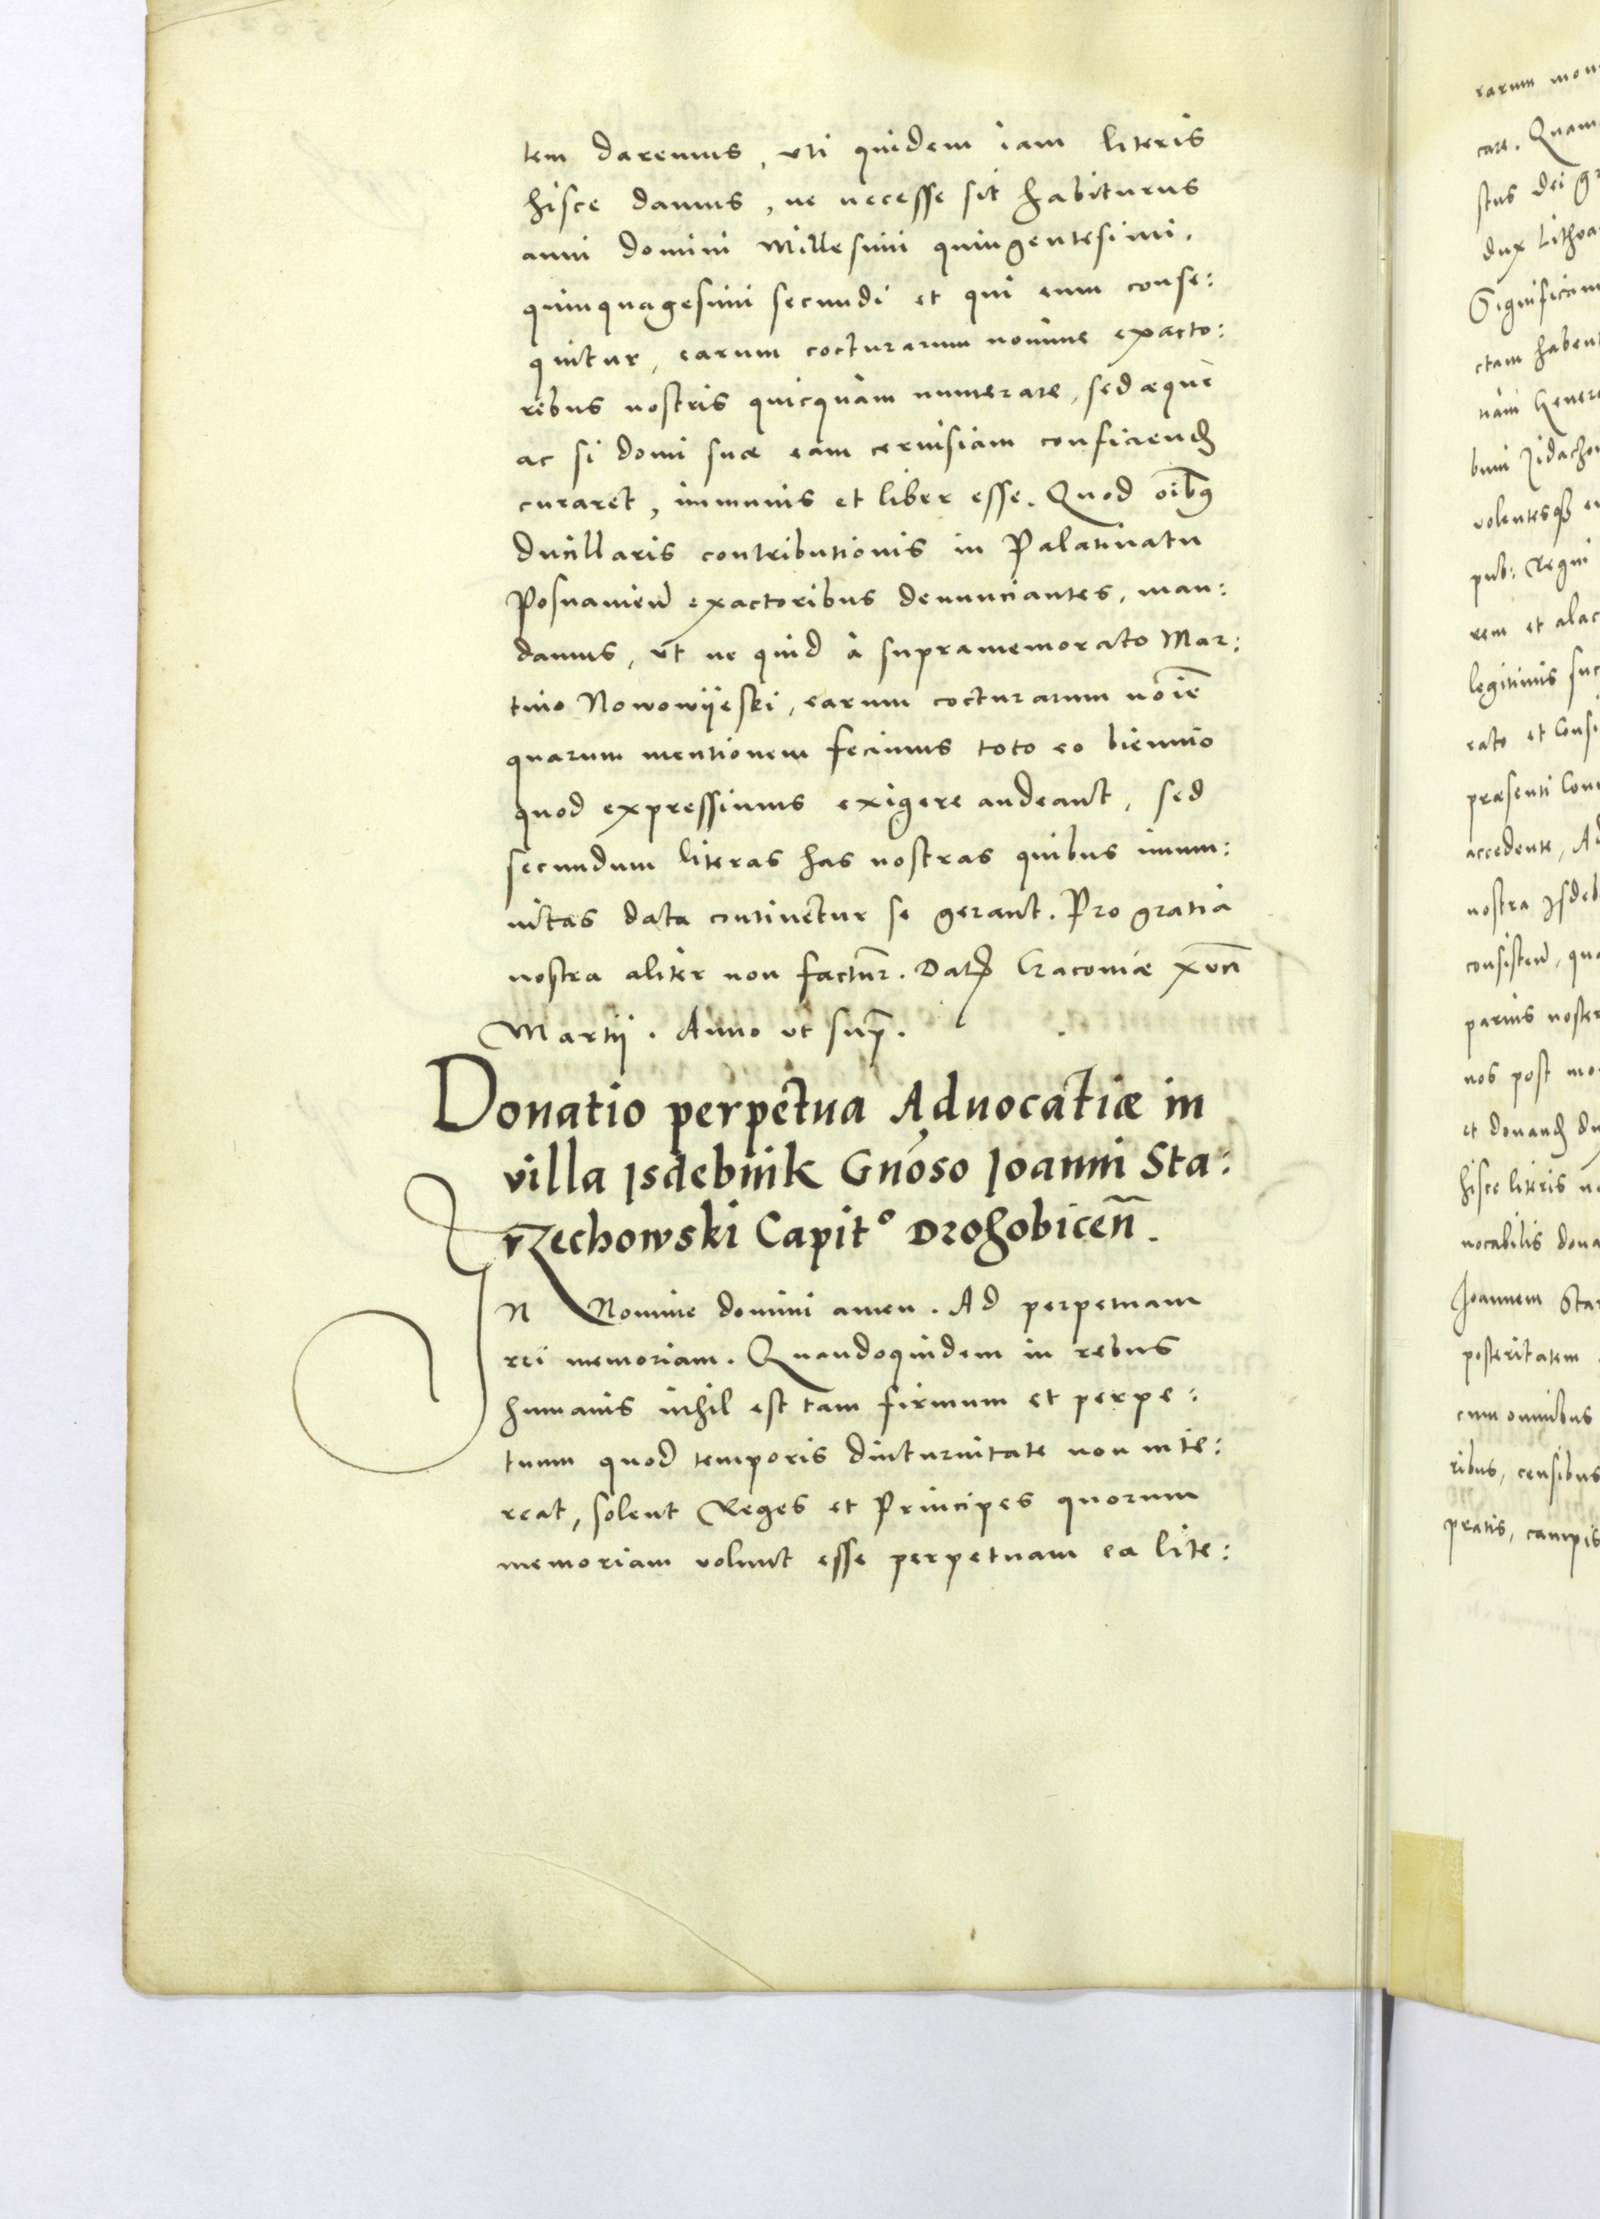 tem daremus, uti quidem iam literis
hisce damus, ne necesse sit habiturus
anni domini Millesimi quingentesimi.
quinquagesimi secundi et qui eum conse:
quitur, earum cocturarum nomine exacto:
ribus nostris quicquam numerare, sed æque
ac si domi suæ eam cervisiam conficiend
curaret, immunis et liber esse. Quod oibus
ducillaris contributionis in Palatinatu
Posnanien exactoribus denunciantes, man:
damus, ut ne quid à supramemorato Mar:
tino Nowowijeski, earum cocturarum noie
quarum mentionem fecimus toto eo biennio
quod expressimus exigere audeant, sed
secundum literas has nostras quibus immu:
nitas data continetur se gerant. Pro gratia
nostra aliter non factur. Dat Cracoviæ
Martij. Anno ut supr.
Donatio perpetua Aduocatiæ in
villa Isdebnik Gnoso Ioanni Sta:
rzechowski Capit° Drohobicen.
In Nomine domini amen. Ad perpetuam
rei memoriam. Quandoquidem in rebus
humanis nihil est tam firmum et perpe:
tuum quod temporis diuturnitate non inte:
reat, solent Reges et Principes quorum
memoriam volunt esse perpetuam ea lite:
rarum
care. Quam
dei
dux
ctam
volentesq
pub: Regni
rem et
legitimis
rato et
præsenti
accedente,
nostra
consisten,
nos post
et donand
hisce literis
vocabilis
Joannem
posteritatem
cum omnibus
ribus, censibus
pratis, campis